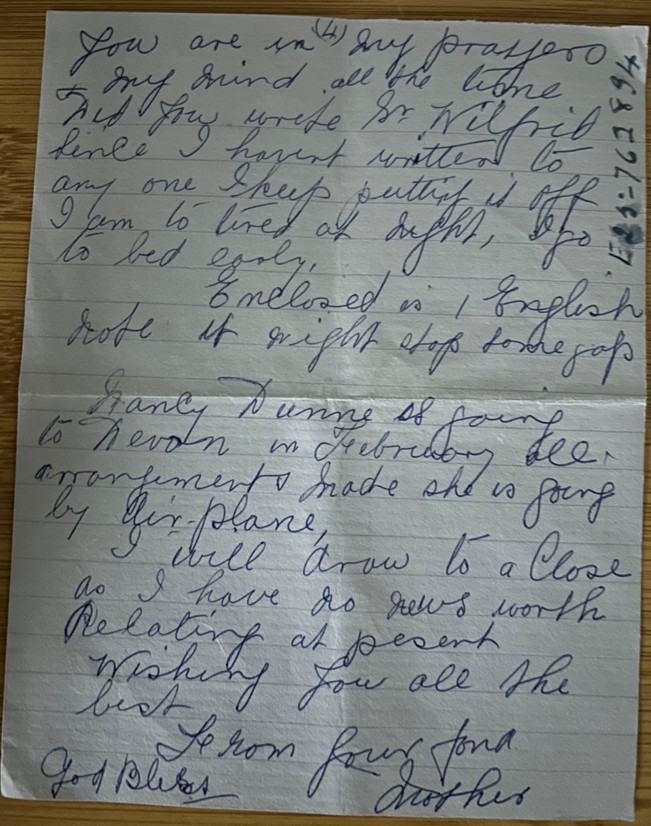 (4)
You are in my prayers
+ my mind all the time
Did you write Sr Wilfrid
Since I havent written to
any one I keep putting it off
I am to tired at night, I go
to bed early,
Enclosed is 1 English
note it might stop some gap
Nancy Dunne is going
to Devon in February all
arrangements made she is going
by Air-plane,
I will draw to a Close
as I have no news worth
Relating at pesent
Wishing you all the
best
From your fond
Mother
God Bless